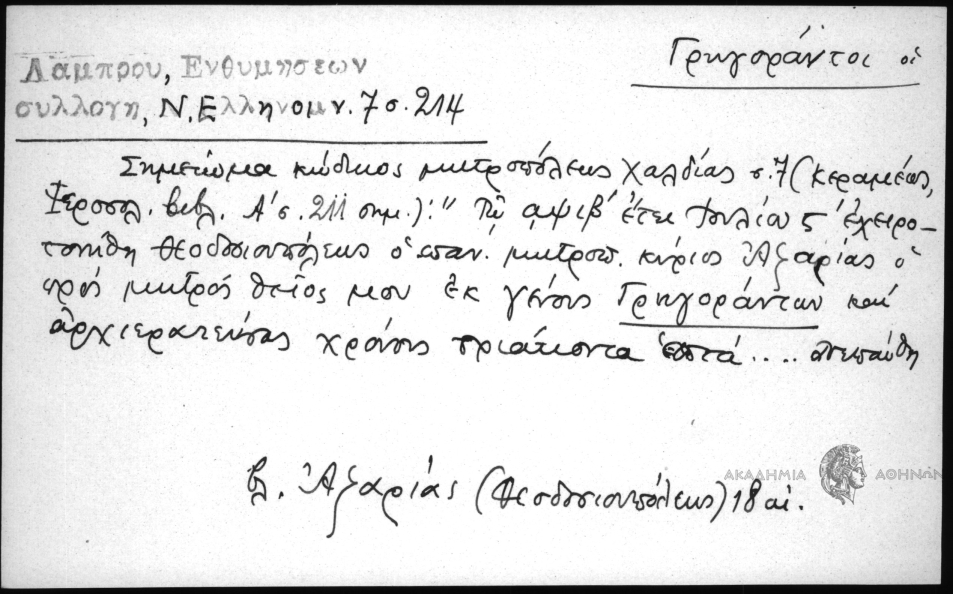 Γρηγοράντοι οἱ
Λάμπρου, Ενθυμησεων
συλλογη, Ν. Ελληνομν. 7 σ. 214
Σημείωμα κώδικος μητροπόλεως Χαλδίας σ. 7 (Κεραμέως,
Ἱεροσολ. βιβλ. Α' σ. 211 σημ.): "Τῷ ͵αψιβ' ἔτει Ἰουλίου 5 ἐχειρο-
τονήθη Θεοδοσιουπόλεως ὁ παν. μητροπ. κύριος Ἀζαρίας ὁ
πρός μητρός θεῖος μου ἐκ γένους Γρηγοράντων καί
ἀρχιερατεύσας χρόνους τριάκοντα ἑπτά .... ἀνεπαύθη
βλ. Ἀζαρίας (Θεοδοσιουπόλεως) 18 αἰ.
ΑΚΑΔΗΜΙΑ ΑΘΗΝΩΝ